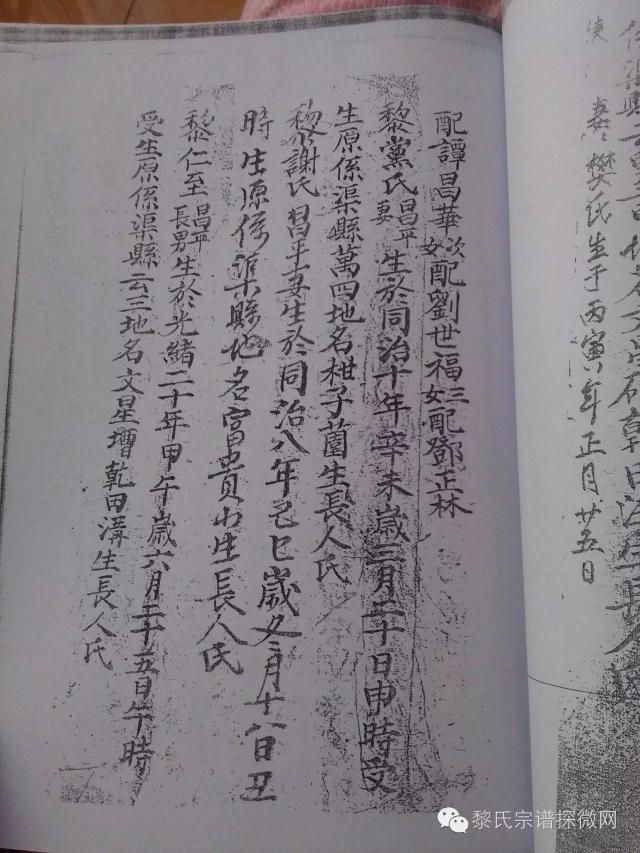 使渠縣
妻樊氏生于丙寅年正月廿五日
配譚昌華次女配劉世福三女配鄧正林
黎黨氏昌平妻生於同治十年辛未歲三月二十日申時受
生原係渠縣萬四地名柑子薗生長人氏
黎謝氏昌平妻生於同治八年己巳歲又二月十八日丑
時生原係渠縣地名富貴山生長人氏
黎仁至昌平長男生於光緒二十年甲午歲六月二十五日午時
受生原係渠縣云三地名文星墰乾田溝生長人氏
黎氏宗谱探微网